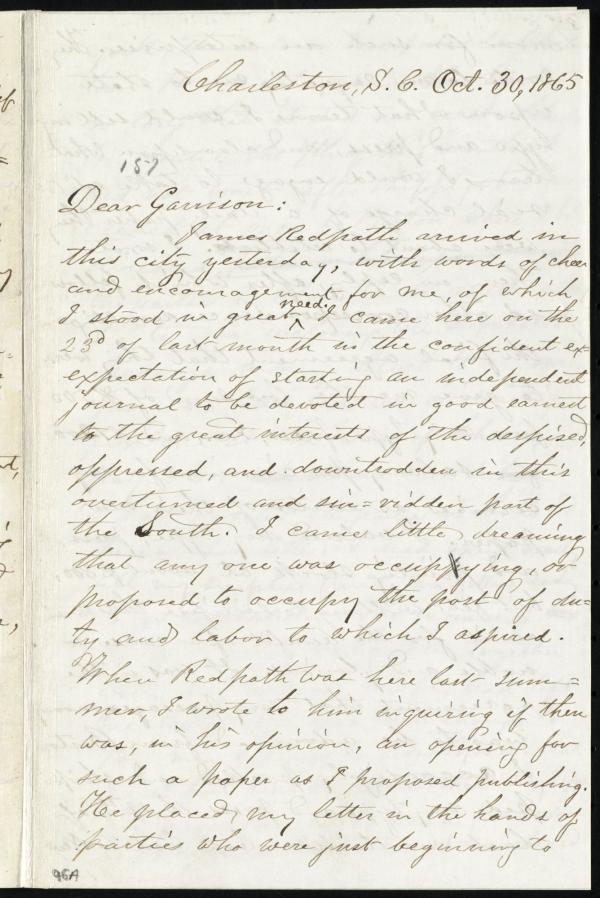 Charleston, S. C. Oct. 30, 1865
157
Dear Garrison:
James Redpath arrived in
this city yesterday, with words of cheer
and encouragement for me, of which
I stood in great need. I came here on the
23d of last month in the confident ex=
expectation of starting an independent
journal to be devoted in good earnest
to the great interests of the despised,
oppressed, and downtrodden in this
overturned and sin=ridden part of
the South. I came little dreaming
that any one was occupying, or
proposed to occupy the post of du=
ty and labor to which I aspired.
When Redpath was here last sum=
mer, I wrote to him inquiring if there
was, in his opinion, an opening for
such a paper as I proposed publishing.
He placed my letter in the hands of
parties who were just beginning to
96A